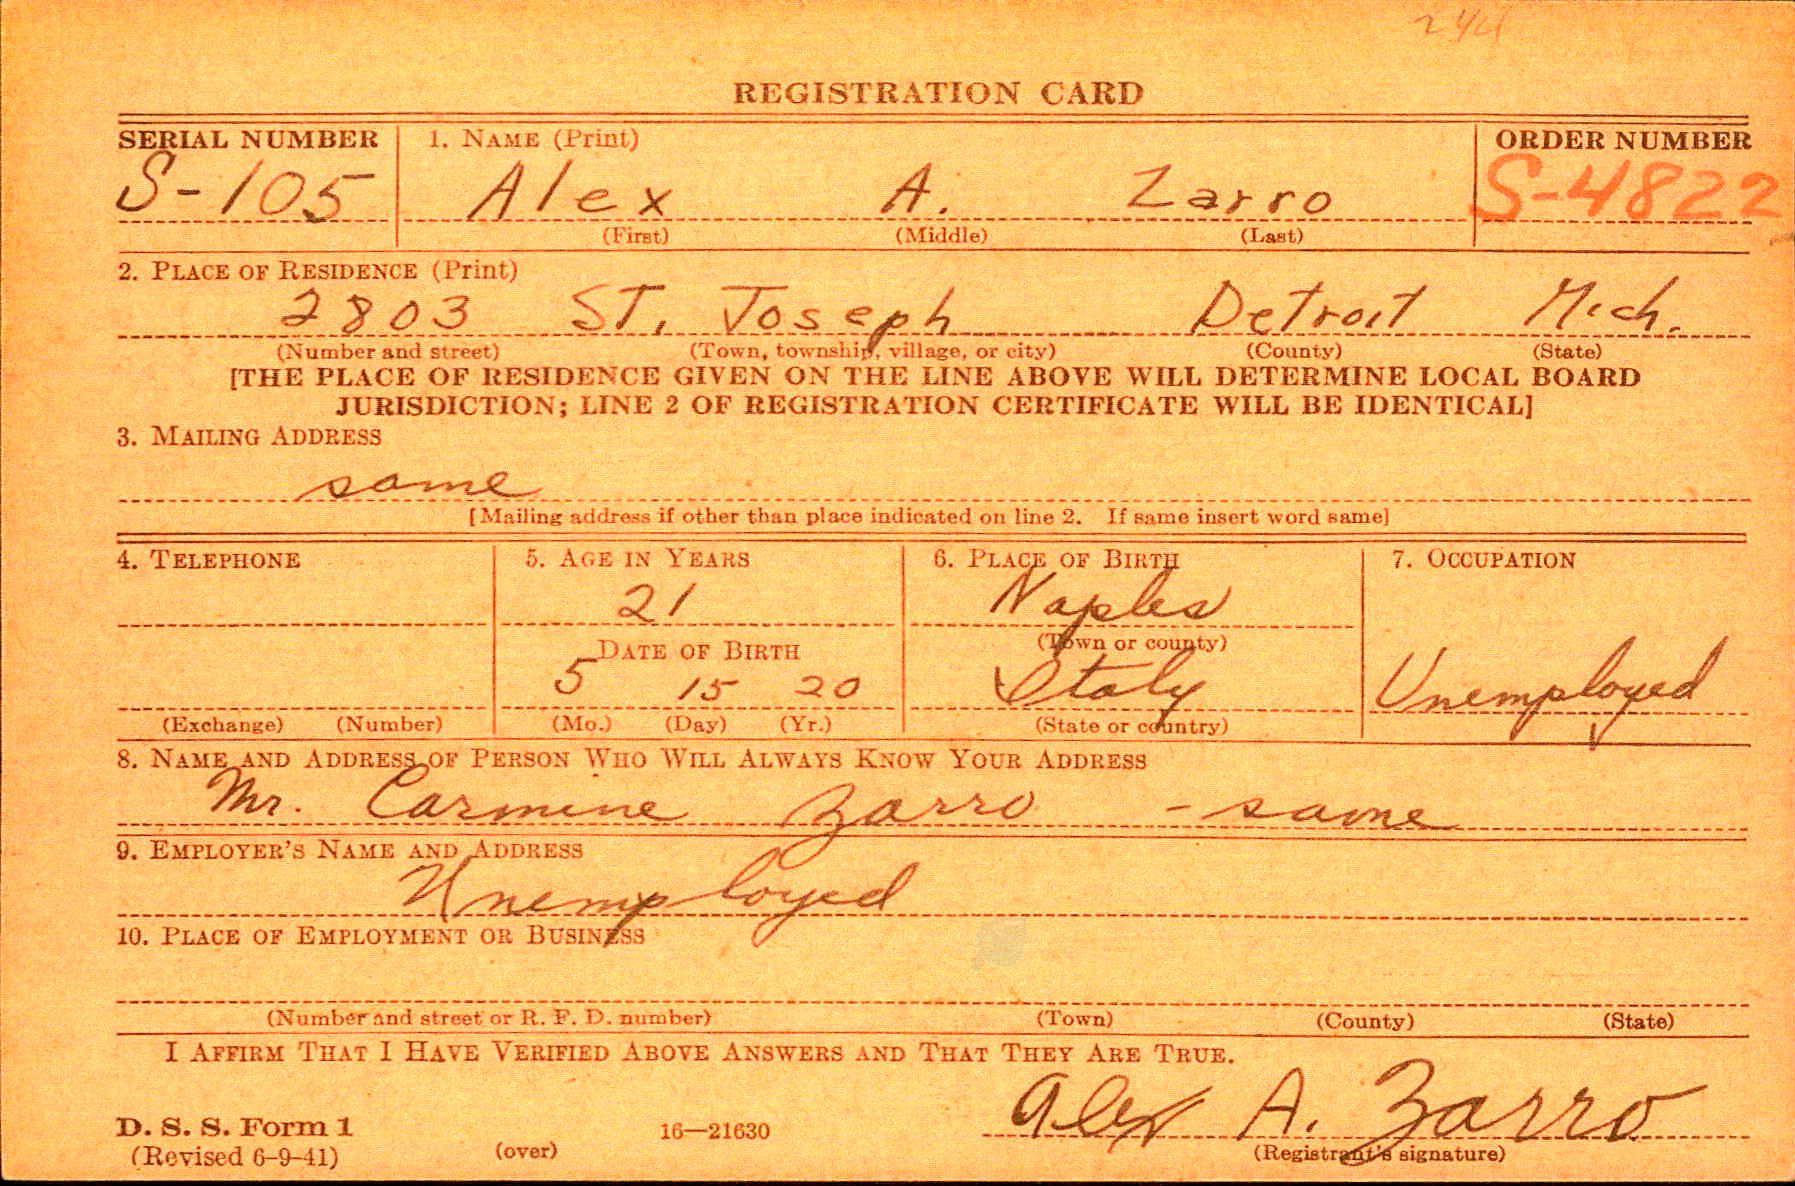 244
REGISTRATION CARD
SERIAL NUMBER 1. NAME (Print) ORDER NUMBER
S-105 Alex A. Zarro S-4822
(First) (Middle) (Last)
2. PLACE OF RESIDENCE (Print)
2803 ST. Joseph Detroit Mich.
(Number and street) (Town, township, village, or city) (County) (State)
[THE PLACE OF RESIDENCE GIVEN ON THE LINE ABOVE WILL DETERMINE LOCAL BOARD
JURISDICTION; LINE 2 OF REGISTRATION CERTIFICATE WILL BE IDENTICAL]
3. MAILING ADDRESS
same
[Mailing address if other than place indicated on line 2. If same insert word same]
4. TELEPHONE 5. AGE IN YEARS 6. PLACE OF BIRTH 7. OCCUPATION
21 Naples
DATE OF BIRTH (Town or county)
5 15 20 Italy Unemployed
(Exchange) (Number) (Mo.) (Day) (Yr.) (State or country)
8. NAME AND ADDRESS OF PERSON WHO WILL ALWAYS KNOW YOUR ADDRESS
Mr. Carmine Zarro - same
9. EMPLOYER'S NAME AND ADDRESS
Unemployed
10. PLACE OF EMPLOYMENT OR BUSINESS
(Number and street or R. F. D. number) (Town) (County) (State)
I AFFIRM THAT I HAVE VERIFIED ABOVE ANSWERS AND THAT THEY ARE TRUE.
Alex A. Zarro
D. S. S. Form 1 16—21630
(Revised 6-9-41) (over) (Registrant's signature)